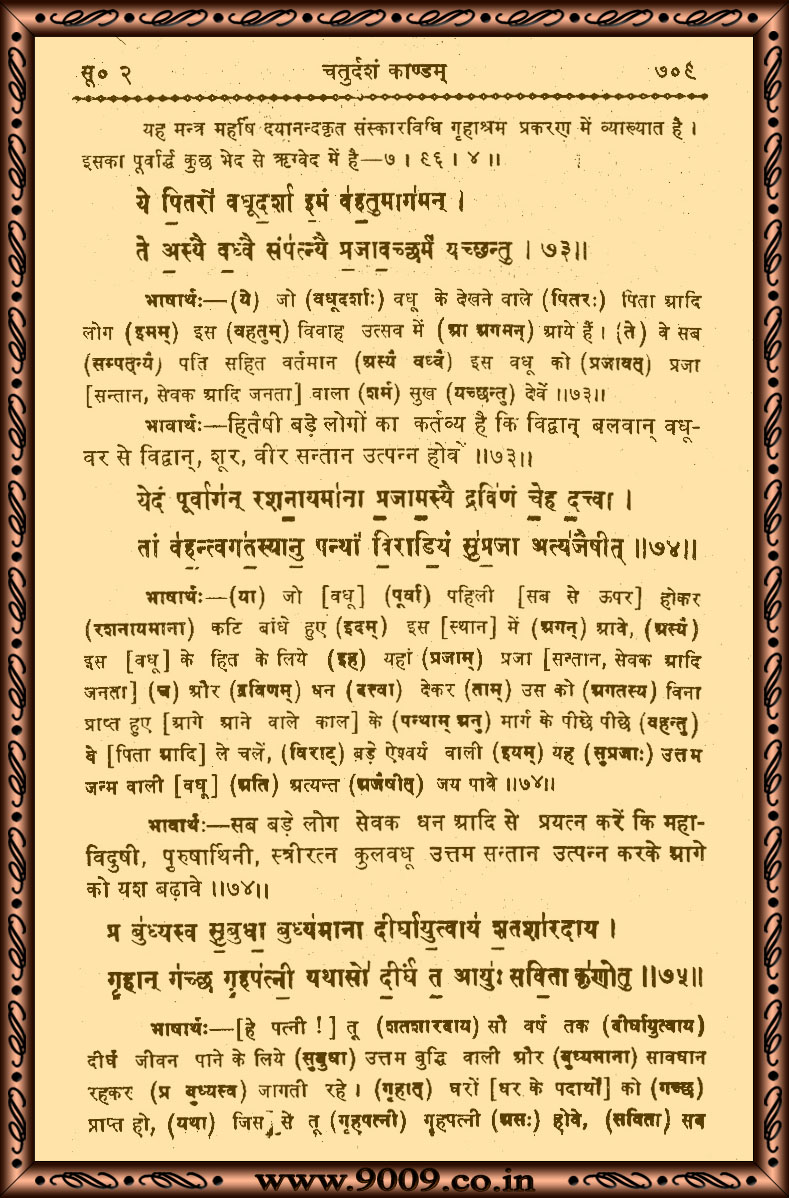 सू० २ चतुर्दशं काण्डम् ७०९
यह मन्त्र महर्षि दयानन्दकृत संस्कारविधि गृहाश्रम प्रकरण में व्याख्यात है ।
इसका पूर्वार्द्ध कुछ भेद से ऋग्वेद में है—७ । ९६ । ४ ॥
ये पि॒तरो॑ वधूद॒र्शा इ॒मं व॑ह॒तुमाग॑मन् ।
ते अ॒स्यै व॒ध्वै संप॑त्न्यै प्र॒जाव॒च्छर्म॑ यच्छन्तु । ७३॥
भाषार्थः—(ये) जो (वधूदर्शाः) वधू के देखने वाले (पितरः) पिता आदि
लोग (इमम्) इस (वहतुम्) विवाह उत्सव में (आ अगमन्) आये हैं । (ते) वे सब
(सम्पत्न्यै) पति सहित वर्तमान (अस्यै वध्वै) इस वधू को (प्रजावत्) प्रजा
[सन्तान, सेवक आदि जनता] वाला (शर्म) सुख (यच्छन्तु) देवें ॥७३॥
भावार्थः—हितैषी बड़े लोगों का कर्तव्य है कि विद्वान् बलवान् वधू-
वर से विद्वान्, शूर, वीर सन्तान उत्पन्न होवें ॥७३॥
येदं पूर्वाग॑न् रश॒नायमा॑ना प्र॒जाम॒स्यै द्रवि॑णं चे॒ह द॒त्त्वा ।
तां व॑ह॒न्त्वग॑त॒स्यानु॒ पन्थां॑ वि॒राडि॒यं सु॑प्र॒जा अत्य॑जैषीत् ॥७४॥
भाषार्थः—(या) जो [वधू] (पूर्वा) पहिली [सब से ऊपर] होकर
(रशनायमाना) कटि बांधे हुए (इदम्) इस [स्थान] में (अगन्) आवे, (अस्यै)
इस [वधू] के हित के लिये (इह) यहां (प्रजाम्) प्रजा [सन्तान, सेवक आदि
जनता] (च) और (द्रविणम्) धन (दत्त्वा) देकर (ताम्) उस को (अगतस्य) विना
प्राप्त हुए [आगे आने वाले काल] के (पन्थाम् अनु) मार्ग के पीछे पीछे (वहन्तु)
वे [पिता आदि] ले चलें, (विराट्) बड़े ऐश्वर्य वाली (इयम्) यह (सुप्रजाः) उत्तम
जन्म वाली [वधू] (अति) अत्यन्त (अजैषीत्) जय पावे ॥७४॥
भावार्थः—सब बड़े लोग सेवक धन आदि से प्रयत्न करें कि महा-
विदुषी, पुरुषार्थिनी, स्त्रीरत्न कुलवधू उत्तम सन्तान उत्पन्न करके आगे
को यश बढ़ावे ॥७४॥
प्र बु॑ध्यस्व सु॒बुधा॒ बुध्य॑माना दीर्घायु॒त्वाय॑ श॒तशा॑रदाय ।
गृ॒हान् ग॑च्छ गृ॒हप॑त्नी॒ यथासो॑ दी॒र्घं त॒ आयुः॑ सवि॒ता कृ॑णोतु ॥७५॥
भाषार्थः—[हे पत्नी !] तू (शतशारदाय) सौ वर्ष तक (दीर्घायुत्वाय)
दीर्घ जीवन पाने के लिये (सुबुधा) उत्तम बुद्धि वाली और (बुध्यमाना) सावधान
रहकर (प्र बुध्यस्व) जागती रहे । (गृहान्) घरों [घर के पदार्थों] को (गच्छ)
प्राप्त हो, (यथा) जिस से तू (गृहपत्नी) गृहपत्नी (असः) होवे, (सविता) सब
www.9009.co.in